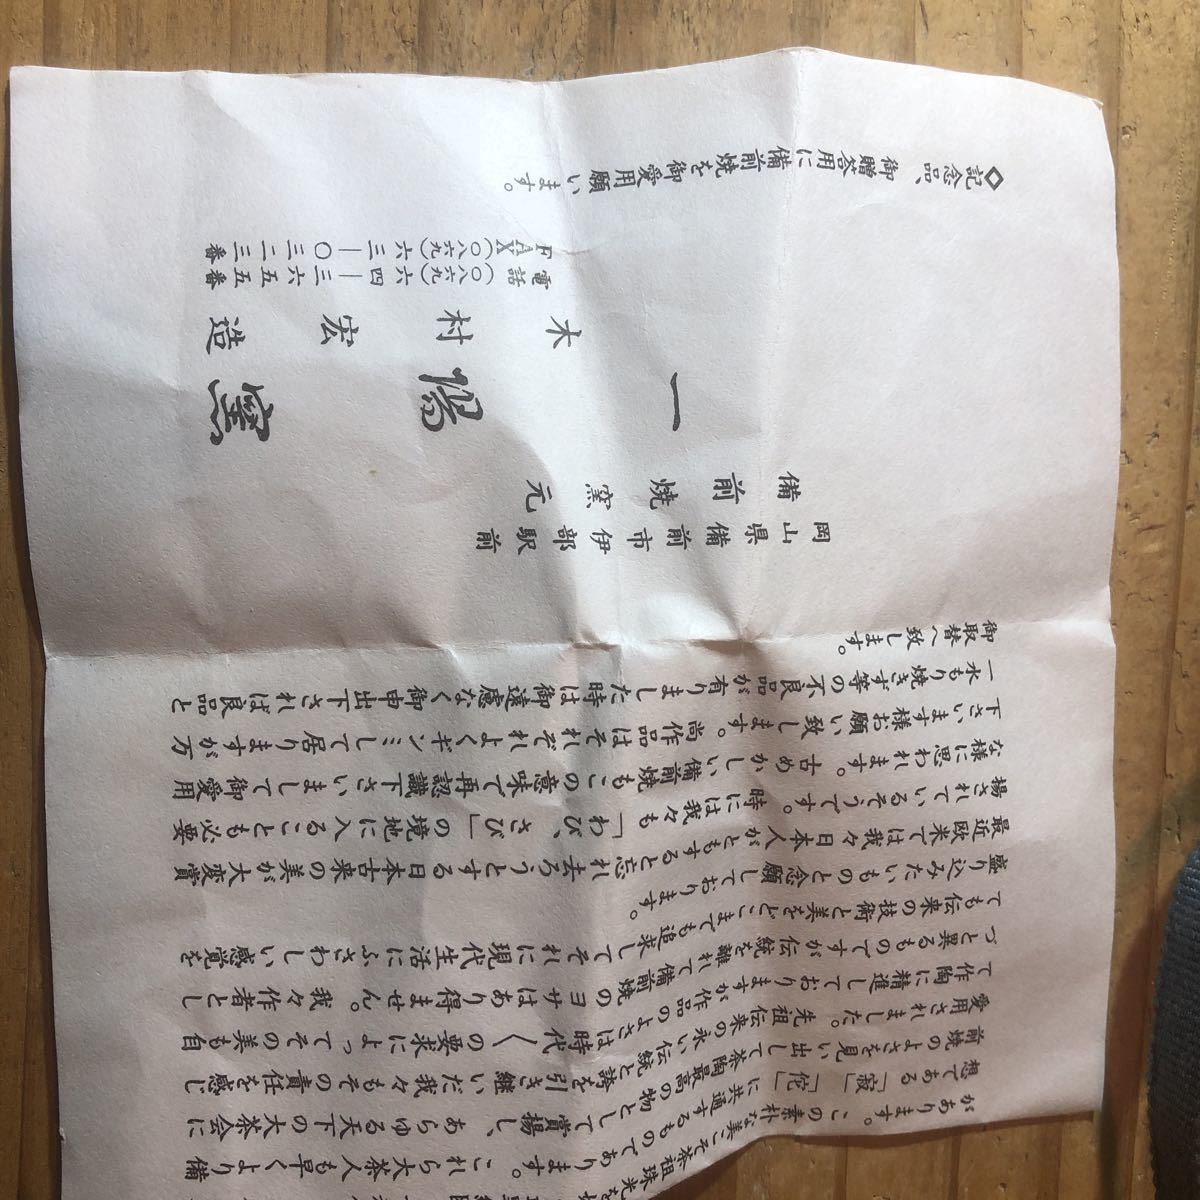 があります。この素朴な美こそ茶祖珠光を
想である「寂」「侘」に共通するものであります。これら大茶人も早くより備
前焼のよさを見い出して茶陶最高の物として賞揚し、あらゆる天下の大茶会に
愛用されました。先祖伝来の永い伝統と誇を引き継いだ我々もその責任を感じ
て作陶に精進しておりますが作品のよさは時代〱の要求によってその美も自
づと異るものですが伝統を離れて備前焼のヨサはあり得ません。我々作者とし
ても伝来の技術と美をどこまでも追求してそれに現代生活にふさわしい感覚を
盛り込みたいものと念願しております。
最近欧米では我々日本人がともすると忘れ去ろうとする日本古来の美が大変賞
揚されているそうです。時には我々も「わび、さび」の境地に入ることも必要
な様に思われます。古めかしい備前焼もこの意味で再認識下さいまして御愛用
下さいます様お願い致します。尚作品はそれぞれよくギンミして居りますが万
一水もり焼きず等の不良品が有りました時は御遠慮なく御申出下されれば良品と
御取替へ致します。
岡山県備前市伊部駅前
備前焼窯元
一陽窯
木村宏造
電話(〇八六九)六四―三六五五番
FAX(〇八六九)六三―〇三二三番
◇記念品、御贈答用に備前焼を御愛用願います。